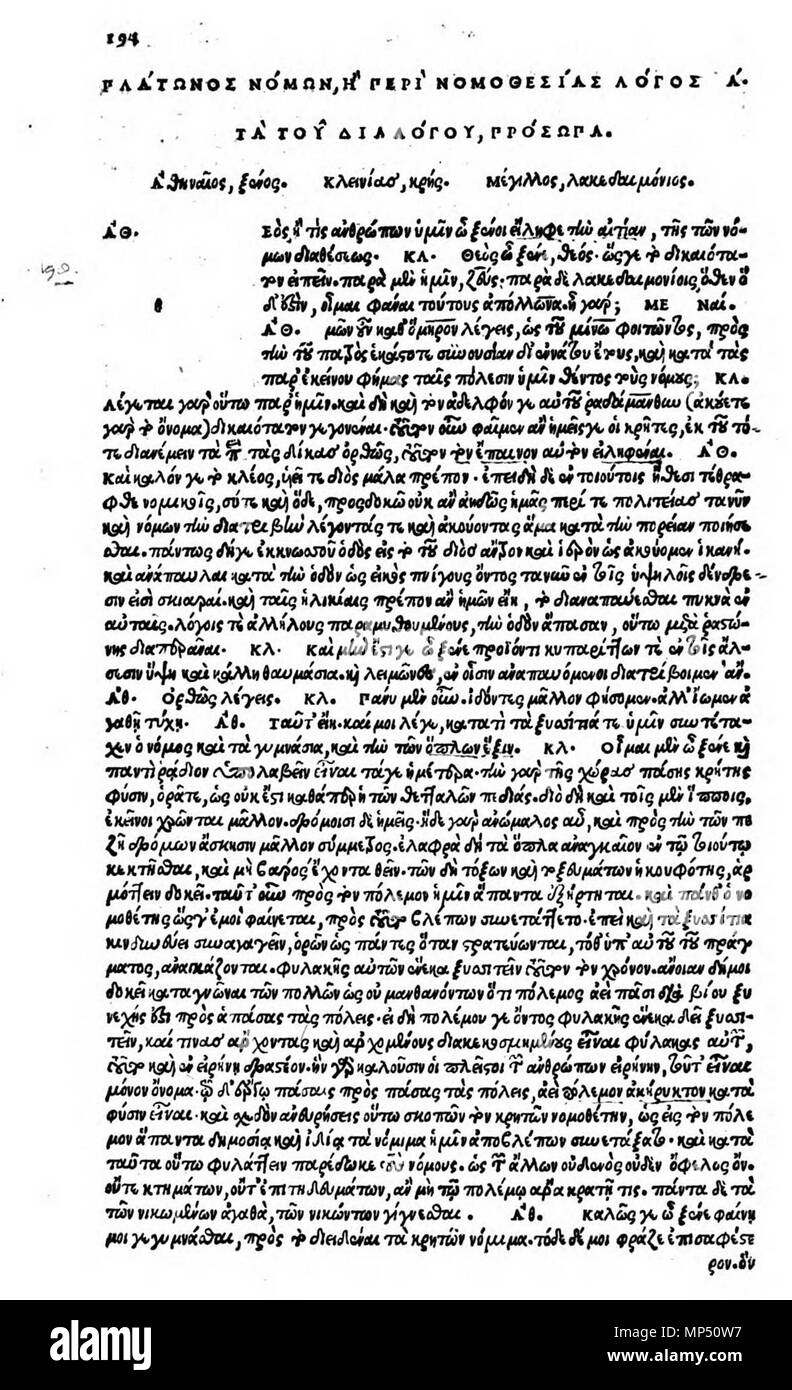 194
ΠΛΑ΄ΤΩΝΟΣ ΝΟ΄ΜΩΝ, Ἢ ΠΕΡῚ ΝΟΜΟΘΕΣΊΑΣ ΛΌΓΟΣ Α΄.
ΤᾺ ΤΟΥ͂ ΔΙΑΛΌΓΟΥ, ΠΡΌΣΩΠΑ.
Ἀθηναῖος, ξένος. Κλεινίας, κρής. Μέγιλλος, λακεδαιμόνιος.
ἈΘ. ΕΟΣ, ἤ τις ἀνθρώπων ὑμῖν ὦ ξένοι εἴληφε τὴν αἰτίαν, τῆς τῶν νό-
μων διαθέσεως. ΚΛ. Θεὸς ὦ ξένε, θεός. ὥς γε τὸ δικαιότα-
199.
τον εἰπεῖν. παρὰ μὲν ἡμῖν, ζεύς. παρὰ δὲ λακεδαιμονίοις, ὅθεν ὅ
θ
δ' ἐστὶν, οἶμαι φάναι τούτους ἀπόλλωνα. ἦ γάρ; ΜΕ Ναί.
ἈΘ. μῶν οὖν καθ' ὅμηρον λέγεις, ὡς τοῦ μίνω φοιτῶντος, πρὸς
τὴν τοῦ πατρὸς ἑκάστοτε συνουσίαν δι' ἐννάτου ἔτους, καὶ κατὰ τὰς
παρ' ἐκείνου φήμας ταῖς πόλεσιν ὑμῖν θέντος τοὺς νόμους; ΚΛ.
Λέγεται γὰρ οὕτω παρ' ἡμῖν. καὶ δὴ καὶ τὸν ἀδελφόν γε αὐτοῦ ῥαδάμανθυν (ἀκούετε
γὰρ τὸ ὄνομα) δικαιότατον γεγονέναι. τοῦτον οὖν φαῖμεν ἂν ἡμεῖς γε οἱ κρῆτες, ἐκ τοῦ τό-
τε διανέμειν τὰ περὶ τὰς δίκας ὀρθῶς, τοῦτον τὸν ἔπαινον αὐτὸν εἰληφέναι. ἈΘ.
Καὶ καλόν γε τὸ κλέος, υἱεῖ τε διὸς μάλα πρέπον. ἐπειδὴ δὲ ἐν τοιούτοις ἤθεσι τέθρα-
φθε νομικοῖς, σύ τε καὶ ὅδε, προσδοκῶ οὐκ ἂν ἀηδῶς ἡμᾶς περί τε πολιτείας τανῦν
καὶ νόμων τὴν διατριβὴν λέγοντάς τε καὶ ἀκούοντας ἅμα κατὰ τὴν πορείαν ποιήσε
σθαι. πάντως δ' ἥ γε ἐκ κνωσσοῦ ὁδὸς εἰς τὸ τοῦ διὸς ἄντρον καὶ ἱερὸν ὡς ἀκούομεν ἱκανή.
καὶ ἀνάπαυλαι κατὰ τὴν ὁδὸν ὡς εἰκὸς πνίγους ὄντος τανῦν ἐν τοῖς ὑψηλοῖς δένδρε-
σιν εἰσὶ σκιαραί. καὶ ταῖς ἡλικίαις πρέπον ἂν ἡμῶν εἴη, τὸ διαναπαύεσθαι πυκνὰ ἐν
αὐταῖς. λόγοις τε ἀλλήλους παραμυθουμένους, τὴν ὁδὸν ἅπασαν, οὕτω μετὰ ῥαστώ-
νης διαπερᾶναι. ΚΛ. Καὶ μὴν ἔστι γε ὦ ξένε προϊόντι κυπαρίττων τε ἐν τοῖς ἄλ-
σεσιν ὕψη καὶ κάλλη θαυμάσια. καὶ λειμῶνες, ἐν οἷσιν ἀναπαυόμενοι διατρίβοιμεν ἄν.
ἈΘ. Ὀρθῶς λέγεις. ΚΛ. Πάνυ μὲν οὖν. ἰδόντες μᾶλλον φήσομεν. ἀλλ' ἴωμεν ἀ
γαθῇ τύχῃ. ἈΘ. Ταῦτ' εἴη. καί μοι λέγε, κατὰ τί τὰ ξυσσίτιά τε ὑμῖν συντέτα-
χεν ὁ νόμος καὶ τὰ γυμνάσια, καὶ τὴν τῶν ὅπλων ἕξιν. ΚΛ. Οἶμαι μὲν ὦ ξένε καὶ
παντὶ ῥᾴδιον ὑπολαβεῖν εἶναι τά γε ἡμέτερα. τὴν γὰρ τῆς χώρας πάσης κρήτης
φύσιν, ὁρᾶτε, ὡς οὐκ ἔστι καθάπερ ἡ τῶν θετταλῶν πεδιάς. διὸ δὴ καὶ τοῖς μὲν ἵπποις,
ἐκεῖνοι χρῶνται μᾶλλον. δρόμοισι δὲ ἡμεῖς. ἥδε γὰρ ἀνώμαλος αὖ, καὶ πρὸς τὴν τῶν πε
ζῇ δρόμων ἄσκησιν μᾶλλον σύμμετρος. ἐλαφρὰ δὴ τὰ ὅπλα ἀναγκαῖον ἐν τῷ τοιούτῳ
κεκτῆσθαι, καὶ μὴ βάρος ἔχοντα θεῖν. τῶν δὴ τόξων καὶ τοξευμάτων ἡ κουφότης, ἁρ
μόττειν δοκεῖ. ταῦτ' οὖν πρὸς τὸν πόλεμον ἡμῖν ἅπαντα ἐξήρτηται. καὶ πάνθ' ὁ νο
μοθέτης ὥς γ' ἐμοὶ φαίνεται, πρὸς τοῦτο βλέπων συνετάττετο. ἐπεὶ καὶ τὰ ξυσσίτια
κινδυνεύει συναγαγεῖν, ὁρῶν ὡς πάντες ὅταν στρατεύωνται, τόθ' ὑπ' αὐτοῦ τοῦ πράγ
ματος, ἀναγκάζονται. φυλακῆς αὑτῶν ἕνεκα ξυσσιτεῖν τοῦτον τὸν χρόνον. ἄνοιαν δή μοι
δοκεῖ καταγνῶναι τῶν πολλῶν ὡς οὐ μανθανόντων ὅτι πόλεμος ἀεὶ πᾶσι διὰ βίου ξυ
νεχής ἐστι πρὸς ἁπάσας τὰς πόλεις. εἰ δὴ πολέμου γε ὄντος φυλακῆς ἕνεκα δεῖ ξυσσι-
τεῖν, καί τινας ἄρχοντας καὶ ἀρχομένους διακεκοσμημένους εἶναι φύλακας αὐτῶν,
τοῦτο καὶ ἐν εἰρήνῃ δραστέον. ἣν γὰρ καλοῦσιν οἱ πλεῖστοι τῶν ἀνθρώπων εἰρήνην, τοῦτ' εἶναι
μόνον ὄνομα. τῷ δ' ἔργῳ πάσαις πρὸς πάσας τὰς πόλεις, ἀεὶ πόλεμον ἀκήρυκτον κατὰ
φύσιν εἶναι. καὶ σχεδὸν ἀνευρήσεις οὕτω σκοπῶν τὸν κρητῶν νομοθέτην, ὡς εἰς τὸν πόλε
μον ἅπαντα δημοσίᾳ καὶ ἰδίᾳ τὰ νόμιμα ἡμῖν ἀποβλέπων συνετάξατο. καὶ κατὰ
ταῦτα οὕτω φυλάττειν παρέδωκε τοὺς νόμους. ὡς τῶν ἄλλων οὐδενὸς οὐδὲν ὄφελος ὄν.
οὔτε κτημάτων, οὔτ' ἐπιτηδευμάτων, ἂν μὴ τῷ πολέμῳ ἄρα κρατῇ τις. πάντα δὲ τὰ
τῶν νικωμένων ἀγαθὰ, τῶν νικώντων γίγνεσθαι. ἈΘ. Καλῶς γε ὦ ξένε φαίνῃ
μοι γεγυμνάσθαι, πρὸς τὸ διειδέναι τὰ κρητῶν νόμιμα. τόδε δέ μοι φράζε ἔτι σαφέστε
ρον. ὃν
alamy
Image ID: MP50W7
www.alamy.com